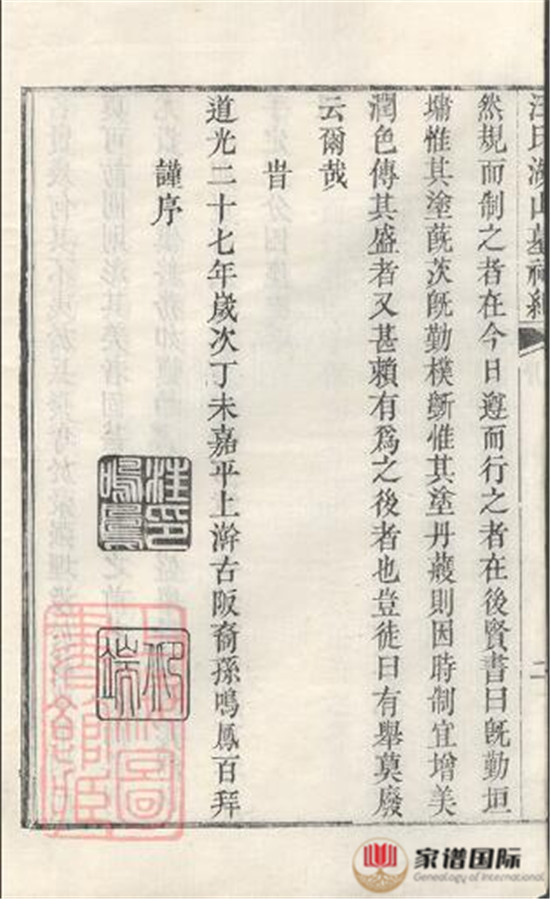 汪氏湖山墓祠紀
二
然規而制之者在今日遵而行之者在後賢書曰既勤垣
墉惟其塗蔇茨既勤樸斲惟其塗丹雘則因時制宜增美
潤色傳其盛者又甚賴有為之後者也豈徒曰有舉莫廢
云爾哉
旹
道光二十七年歲次丁未嘉平上澣古阪裔孫鳴鳳百拜
謹序
汪鳴鳳印
家谱国际
Genealogy of International